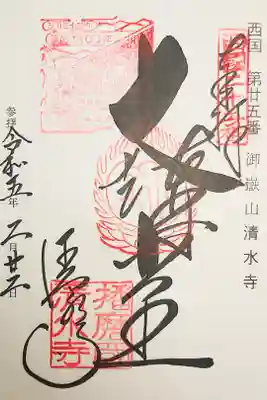 西国 第廿五番 御嶽山清水寺
奉拝
大講堂
清水寺
参拝 令和五年二月廿二日
播磨
清水寺